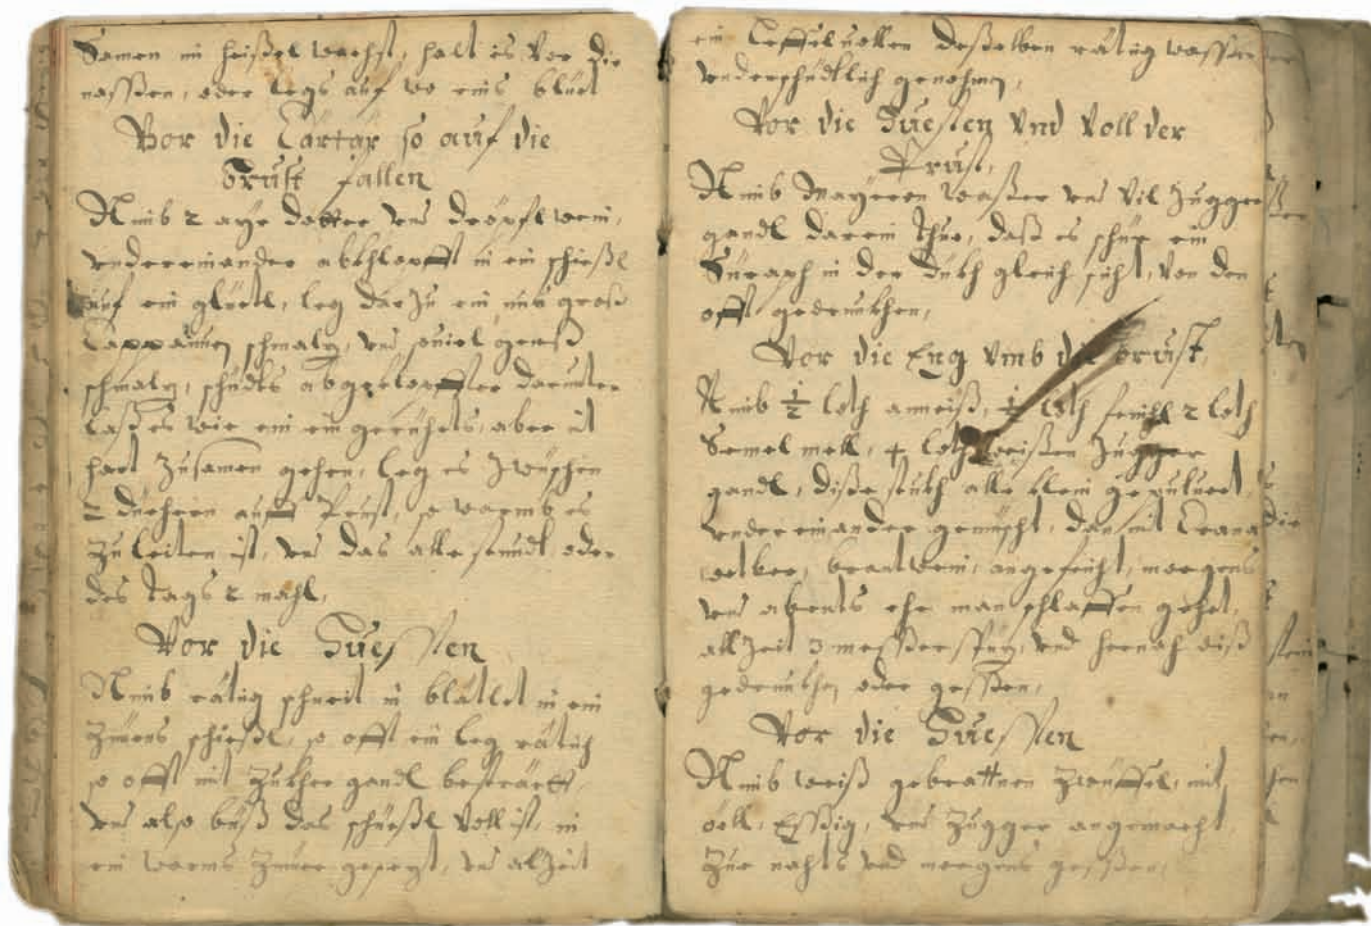 Samen in heißel wachst, halt es vor die
nasßen, oder legs auf wo eins blüet
Vor die Cartar so auf die
Brust fallen
Nimb 2 ayr dotter und dröpfl wein,
undereinander abkhlopfft in ein schießl
auf ein glüetl, leg darzu ein nus groß
Cappaunen schmalz, und souiel genß
schmalz, schüdts abgeklopffter darunter
laß es wie ein ein gerührts, aber nit
hart zusamen gehen, leg es zwüschen
2 düecher auf Prust, so warmb es
zu leiten ist, und das alle stundt oder
des tags 2 mahl,
Vor die Huesten
Nimb rätig schneit in blätlet in ein
Zinens schießl, so offt ein leg rätich
so offt mit Zukher gandl besträet,
und also büß das schüeßl voll ist, in
ein warms Zimer gesezt, und alzeit
ein Leffel vollen deßelben rätig wasser
underschüdtlich genohmen,
Vor die Huesten Und Voll der
Prust,
Nimb wasßer und vil Zugger
gandl darein thue, daß es schür ein
Süraph in der dükh gleich sicht, von den
offt gedrunkhen,
Vor die Eng Umb die Brust
Nimb ½ loth anneiß, loth fenichl 2 loth
Semel mell, 4 loth weißen Zugger
gandl, diße stukh alle klein gepuluert
undereinander gemischt, dan mit Crana
wetber, brantwein, angefeicht, morgens
und abents ehe man schlaffen gehet,
allzeit 3 messerspiz, und hernach diß
gedrunkhen oder gesßen,
Vor die Huesten
Nimb weiß gebrattnen Zwüffel, mit
öell, Esßig, und Zugger angemacht
Zur nahts und morgens gesßen,